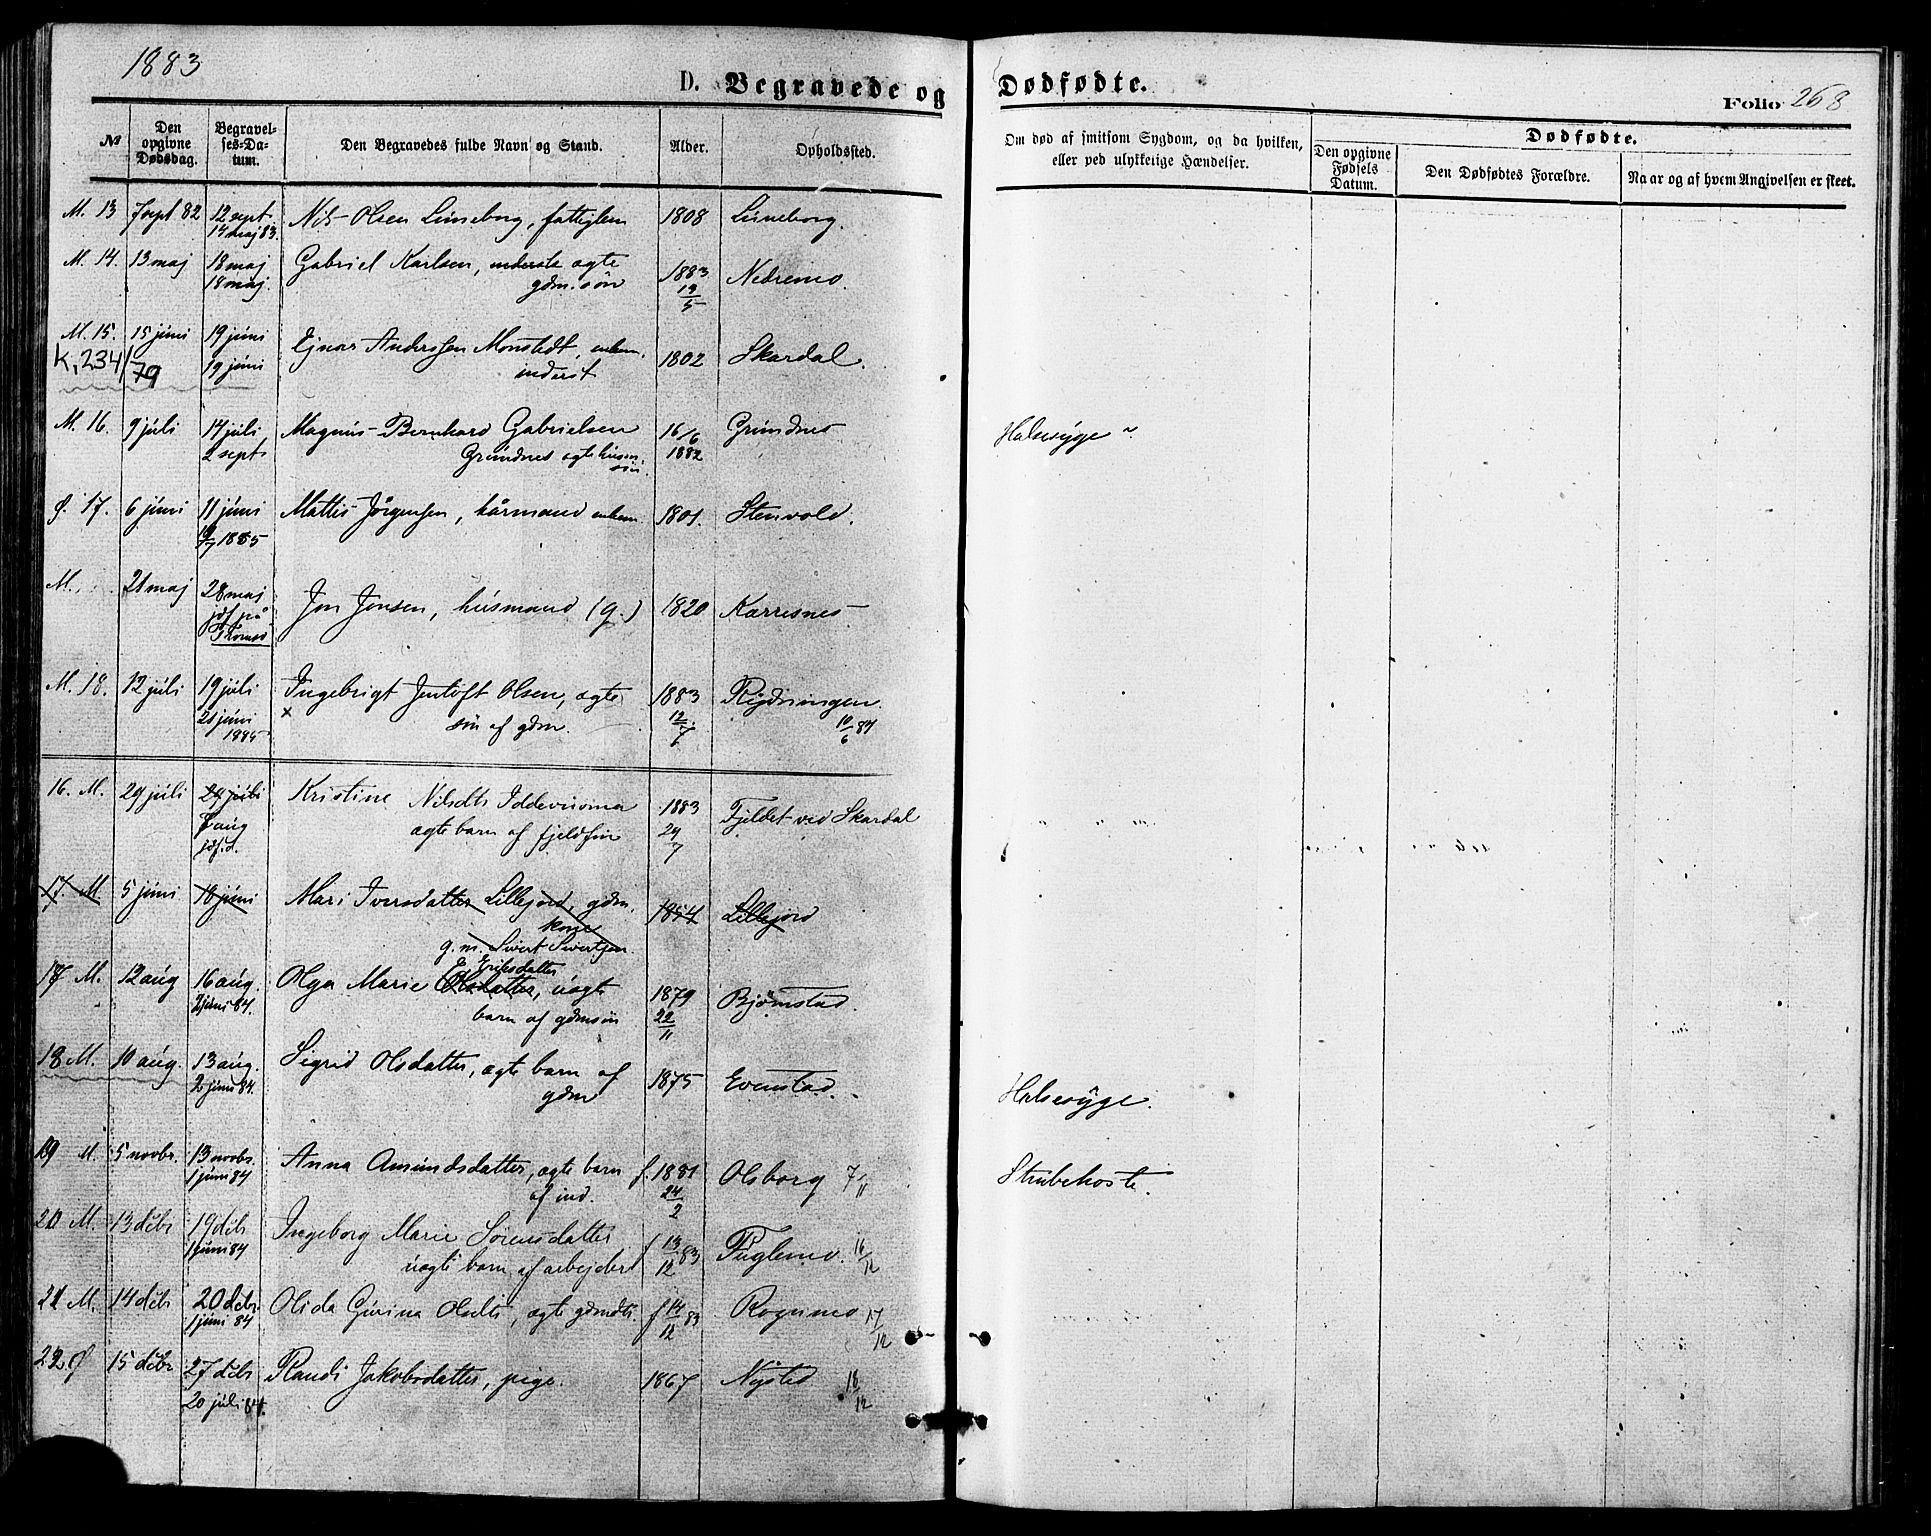 1883
D. Begravede og Dødfødte.
Folio 268
№
Den opgivne Dødsdag.
Begravelses-Datum.
Den Begravedes fulde Navn og Stand.
Alder.
Opholdssted.
Om død af smitsom Sygdom, og da hvilken, eller ved ulykkelige Hændelser.
Dødfødte.
Den opgivne Fødsels Datum.
Den Dødfødtes Forældre.
Naar og af hvem Angivelsen er skeet.
M. 13 7 sept 82 12 sept Nils Olsen Luneborg, fattiglem 1808 Luneborg.
14 maj 83.
M. 14. 13 maj 18 maj Gabriel Karlsen, inderste ægte 1883 Nedremo.
18 maj. gdm. søn 13/5
M. 15. 15 juni 19 juni Ejnar Anderssen Monstedt, enkem. 1802 Skardal.
K, 234/79 19 juni inderst
M. 16. 9 juli 14 juli Magnus Bernhard Gabrielsen 16/6 Grundnes Halsesyge
2 sept Grundnes ægte husm 1882
søn.
Ø. 17. 6 juni 11 juni Mattis Jørgensen, kårmand enkem 1801. Stenvold.
1885
M. 21 maj 28 maj Jon Jonsen, husmand (g.) 1820 Karresnes
jdf. på
Tromsø
M. 18. 12 juli 19 juli Ingebrigt Jentoft Olsen, ægte 1883 Rydningen.
21 juni x søn af gdm. 12/7 10/6 84
1885
16. M. 24 juli 24 juli Kristine Nilsdts Iddevuoma 1883 Fjeldet ved Skardal
aug ægte barn af fjeldfin 24/7
jdf. d.
17. M 5 juni 18 juni Mari Iversdatter Lillejord, gdm. 1854 Lillejord
kone
g. m. Sivert Sivertsen
Eriksdatter
17 M. 12 aug 16 aug. Olga Marie Olsdatter, uægte 1879 Bjørnstad.
2 juni 84. barn af gdmsøn 22/11
18 M. 10 aug. 13 aug. Sigrid Olsdatter, ægte barn af 1875 Evenstad. Halsesyge.
2 juni 84. gdm
19 M. 5 novbr. 13 novbr. Anna Amundsdatter, ægte barn f. 1881 Olsborg 7/11 Strubehoste.
1 juni 84 af ind. 24/2
20 M. 13 debr 19 debr Ingeborg Marie Sørensdatter f 13/12 83 Fuglemo. 16/12
1 juni 84 uægte barn af arbejder
21 M. 14 debr 20 debr. Olida Gurina Olsdts, ægte gdmdts. f 14/12 83 Rognmo 17/12
1 juni 84
22 Ø 15 debr 27 debr Randi Jakobsdatter, pige. 1867 Nysted 18/12
20 juli 84.